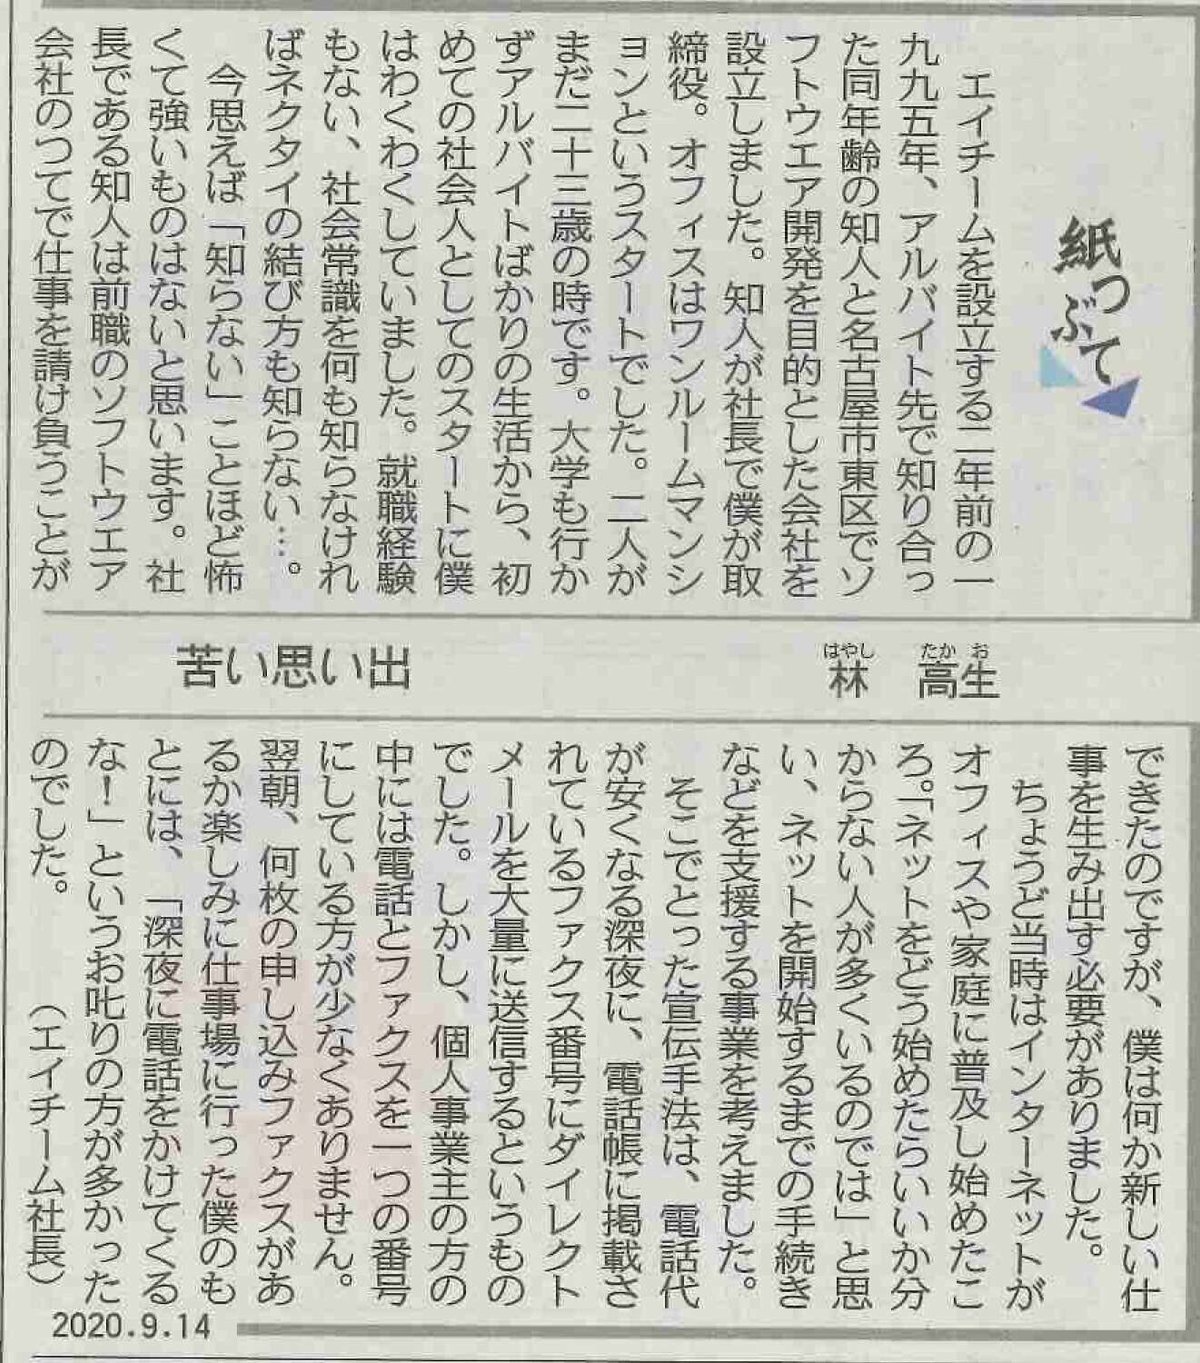 紙つぶて
エイチームを設立する二年前の一
九九五年、アルバイト先で知り合っ
た同年齢の知人と名古屋市東区でソ
フトウエア開発を目的とした会社を
設立しました。知人が社長で僕が取
締役。オフィスはワンルームマンシ
ョンというスタートでした。二人が
まだ二十三歳の時です。大学も行か
ずアルバイトばかりの生活から、初
めての社会人としてのスタートに僕
はわくわくしていました。就職経験
もない、社会常識を何も知らなけれ
ばネクタイの結び方も知らない…。
今思えば「知らない」ことほど怖
くて強いものはないと思います。社
長である知人は前職のソフトウエア
会社のつてで仕事を請け負うことが
苦い思い出
林 高生
はやし たか お
できたのですが、僕は何か新しい仕
事を生み出す必要がありました。
ちょうど当時はインターネットが
オフィスや家庭に普及し始めたこ
ろ。「ネットをどう始めたらいいか分
からない人が多くいるのでは」と思
い、ネットを開始するまでの手続き
などを支援する事業を考えました。
そこでとった宣伝手法は、電話代
が安くなる深夜に、電話帳に掲載さ
れているファクス番号にダイレクト
メールを大量に送信するというもの
でした。しかし、個人事業主の方の
中には電話とファクスを一つの番号
にしている方が少なくありません。
翌朝、何枚の申し込みファクスがあ
るか楽しみに仕事場に行った僕のも
とには、「深夜に電話をかけてくる
な！」というお叱りの方が多かった
のでした。 （エイチーム社長）
2020.9.14